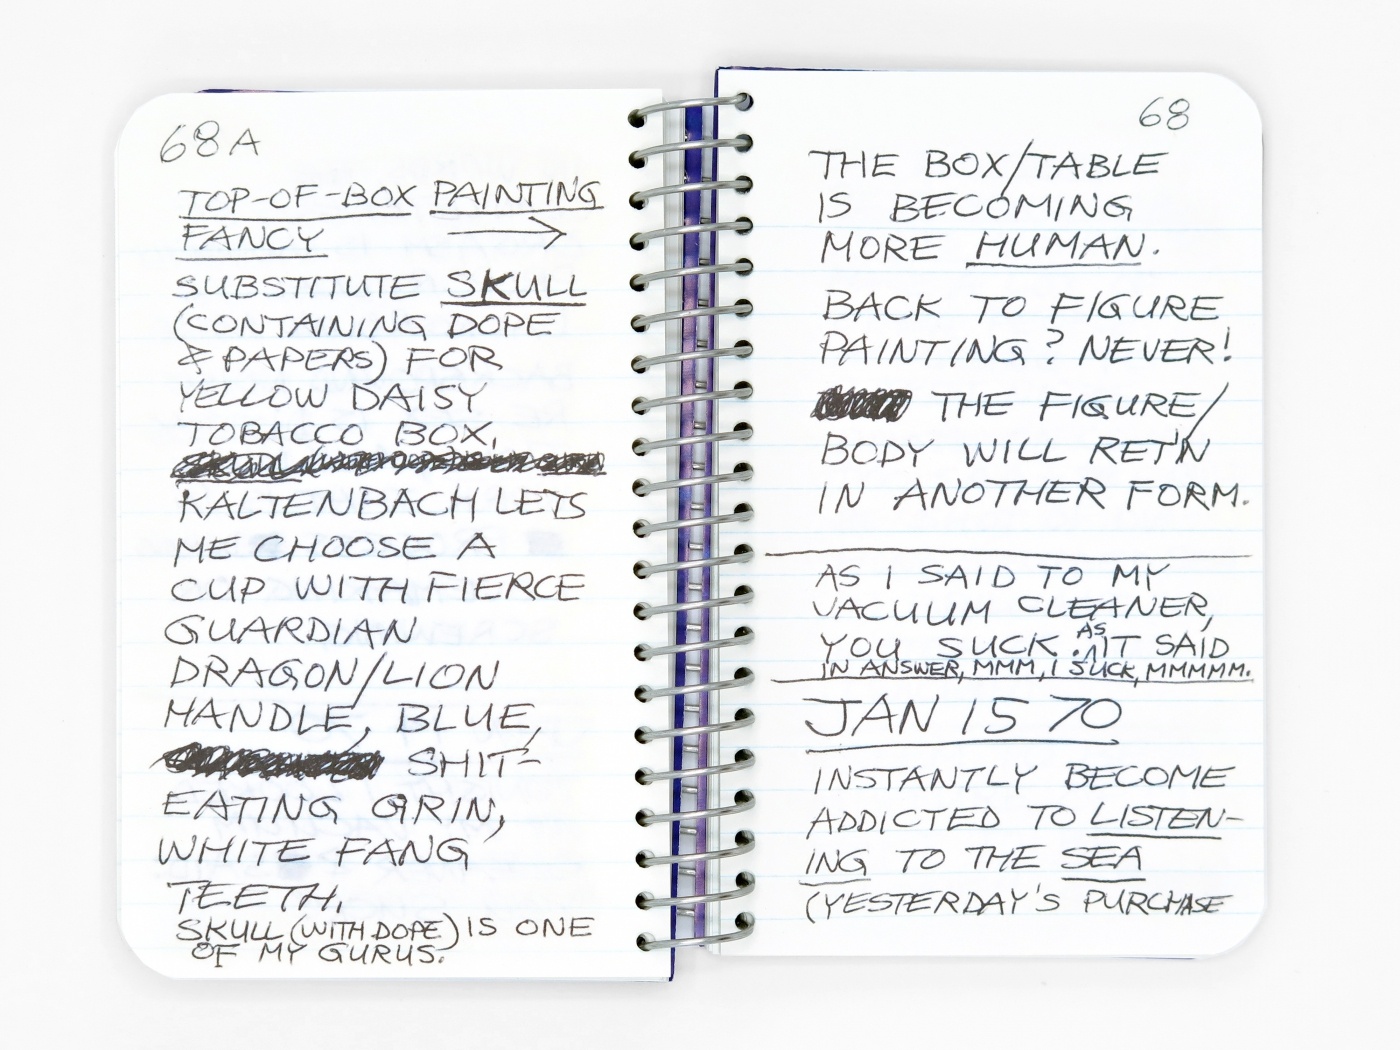 68A
TOP-OF-BOX PAINTING
FANCY →
SUBSTITUTE SKULL
(CONTAINING DOPE
& PAPERS) FOR
YELLOW DAISY
TOBACCO BOX.
KALTENBACH LETS
ME CHOOSE A
CUP WITH FIERCE
GUARDIAN
DRAGON/LION
HANDLE, BLUE,
SHIT-
EATING GRIN,
WHITE FANG
TEETH.
SKULL (WITH DOPE) IS ONE
OF MY GURUS.
68
THE BOX/TABLE
IS BECOMING
MORE HUMAN.
BACK TO FIGURE
PAINTING? NEVER!
THE FIGURE/
BODY WILL RET'N
IN ANOTHER FORM.
AS I SAID TO MY
VACUUM CLEANER,
YOU SUCK. IT SAID
IN ANSWER, MMM, I AS SUCK, MMMMM.
JAN 15 70
INSTANTLY BECOME
ADDICTED TO LISTEN-
ING TO THE SEA
(YESTERDAY'S PURCHASE